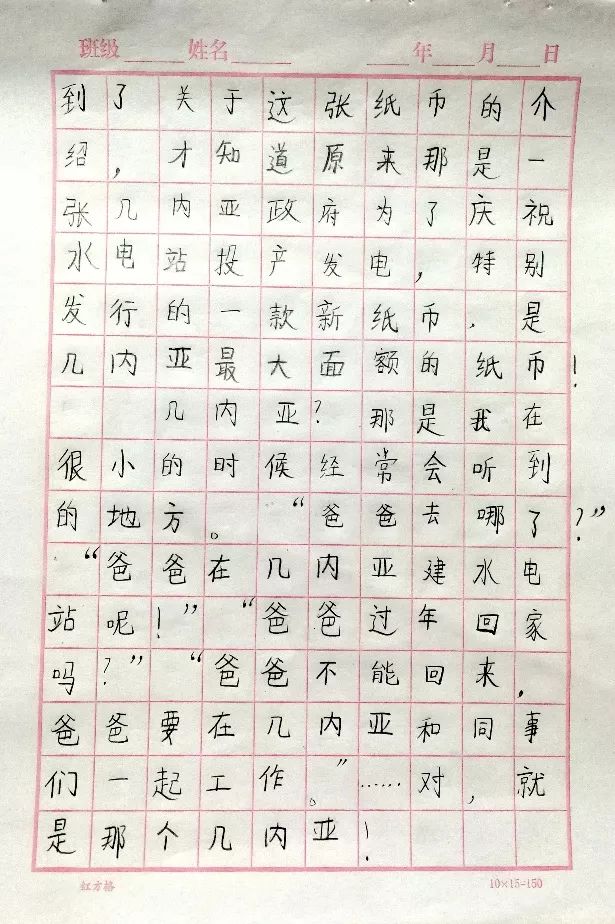 班级______姓名______ ____年____月____日
到了关于这张纸币的介
绍，才知道原来那是一
张几内亚政府为了庆祝
水电站投产发电，特别
发行的一款新纸币，是
几内亚最大面额的纸币！
几内亚？那是我在
很小的时候经常会听到
的地方。“爸爸去哪了？”
“爸爸在几内亚建水电
站呢！”“爸爸过年回家
吗？”“爸爸不能回来，
爸爸要在几内亚和同事
们一起工作。”……对，就
是那个几内亚！
红方格 10×15=150